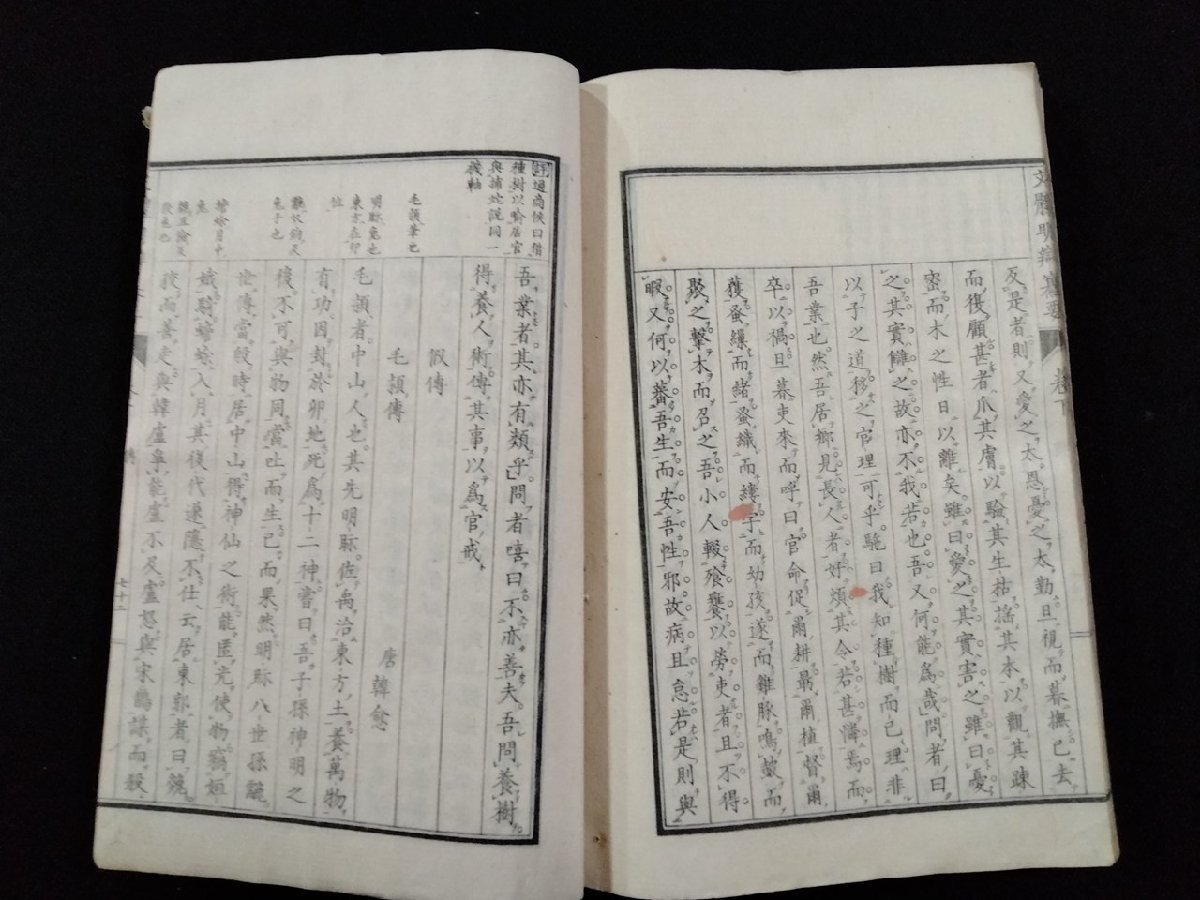 文體明辯
卷下
反是者則又愛之太恩憂之太勤旦視而暮撫已去
而復顧甚者爪其膚以驗其生枯搖其本以觀其疎
密而木之性日以離矣雖曰愛之其實害之雖曰憂
之其實讎之故不我若也吾又何能爲哉問者曰
以子之道移之官理可乎駞曰我知種樹而已理非
吾業也然吾居鄉見長人者好煩其令若甚憐焉而
卒以禍旦暮吏來而呼曰官命促爾耕勗爾植督爾
穫蚤繅而緒蚤織而縷字而幼孩遂而雞豚鳴鼓而
聚之擊木而召之吾小人輟飱饔以勞吏者且不得
暇又何以蕃吾生而安吾性邪故病且怠若是則與
評過商侯曰借
種樹以喻居官
與捕蛇說同一
機軸
吾業者其亦有類乎問者嘻曰不亦善夫吾問養樹
得養人術傳其事以爲官戒
假傳
毛穎傳
唐韓愈
毛穎筆也
明眎兔也
東方在卯
位
毛穎者中山人也其先明眎佐禹治東方土養萬物
有功因封於卯地死爲十二神嘗曰吾子孫神明之
兔子也
後不可與物同當吐而生已而果然明眎八世孫䨲
世傳當殷時居中山得神仙之術能匿光使物竊姮
娥騎蟾蜍入月其後代遂隱不仕云居東郭者曰㕙
狡而善走與韓盧爭能盧不及盧怒與宋鵲謀而殺
七十二